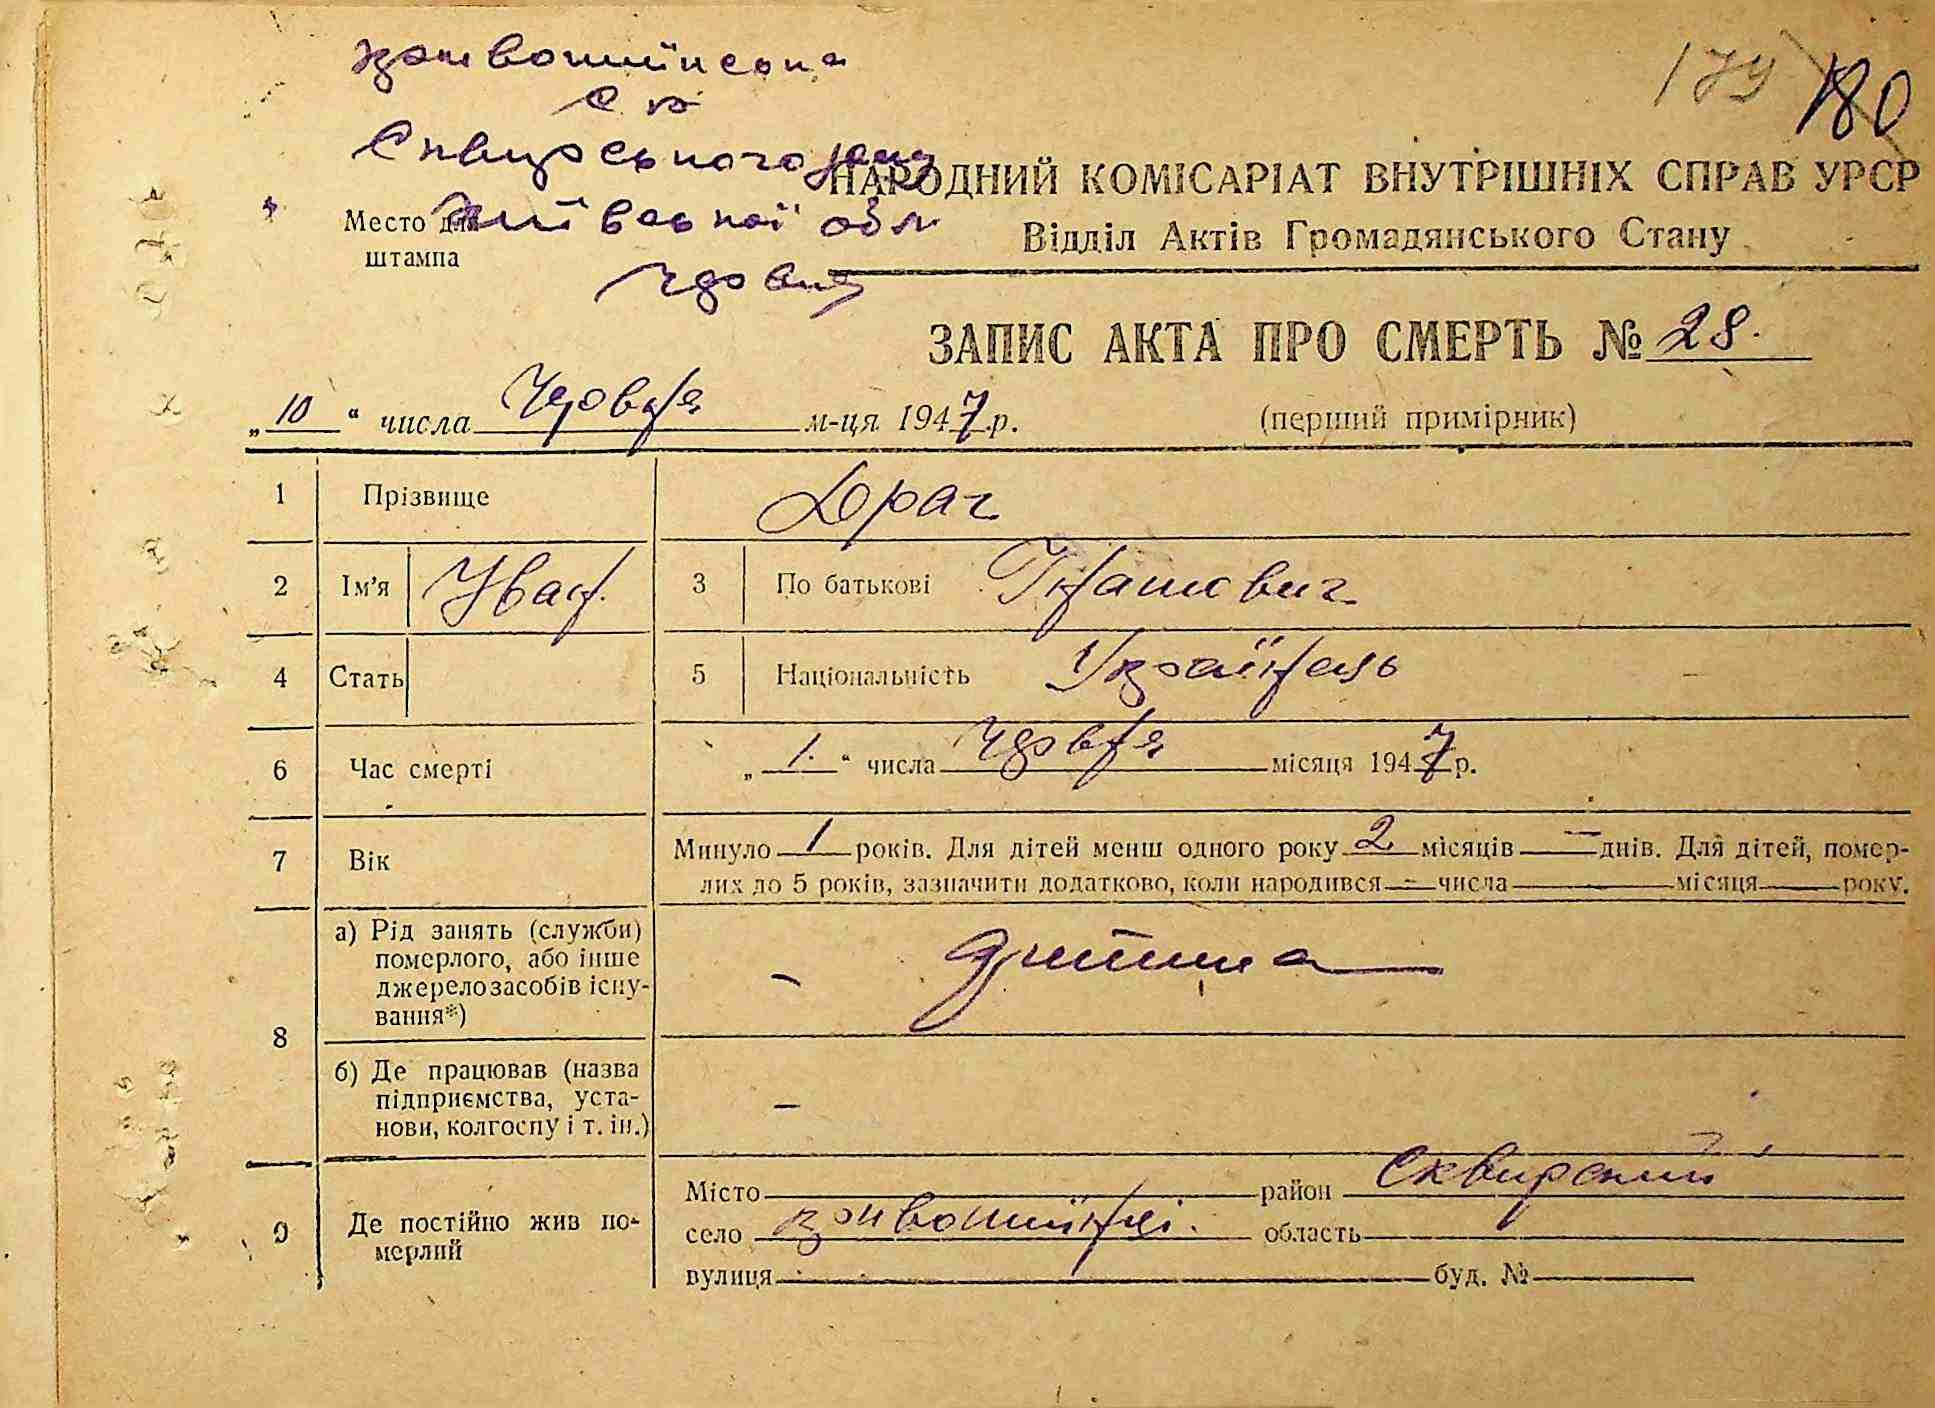 Кривошиїнська
с р
Сквирського району
Київської обл
179 180
НАРОДНИЙ КОМІСАРІАТ ВНУТРІШНІХ СПРАВ УРСР
Відділ Актів Громадянського Стану
Место для штампа
ЗАПИС АКТА ПРО СМЕРТЬ № 28.
„10“ числа Червня м-ця 1947 р. (перший примірник)
1 Прізвище Драч
2 Ім'я Иван 3 По батькові Ігнатович
4 Стать 5 Національність Українець
6 Час смерті „1.“ числа Червня місяця 1947 р.
7 Вік Минуло 1 років. Для дітей менш одного року 2 місяців — днів. Для дітей, помер-
лих до 5 років, зазначити додатково, коли народився – числа місяця року.
8 а) Рід занять (служби) померлого, або інше джерело засобів існу-вання*) – дитина
б) Де працював (назва підприємства, уста-нови, колгоспу і т. ін.) –
9 Де постійно жив по-мерлий
Місто район Сквирский
село Кривошиїнці. область
вулиця буд. №